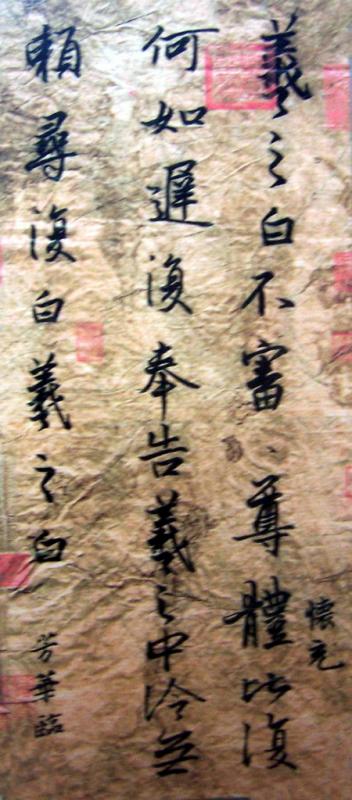 羲之白不審尊體比復
何如遲復奉告羲之中冷無
賴尋復白羲之白
懷充
芳華臨